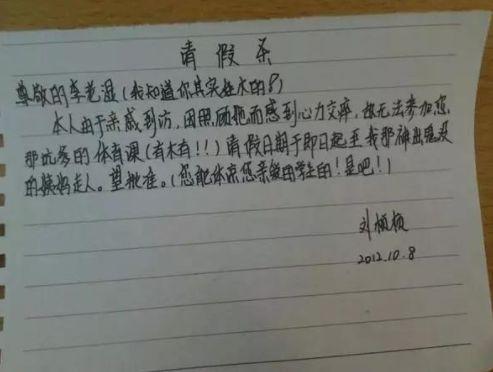 请假条
尊敬的李老湿(我知道你其实姓木的?)
本人由于亲戚到访,因照顾她而感到心力交瘁,故无法参加您
那坑爹的体育课(有木有!!)请假日期于即日起至我那神出鬼没
的姨妈走人。望批准。(您能体谅您亲爱的学生的!是吧!)
刘
2012.10.8